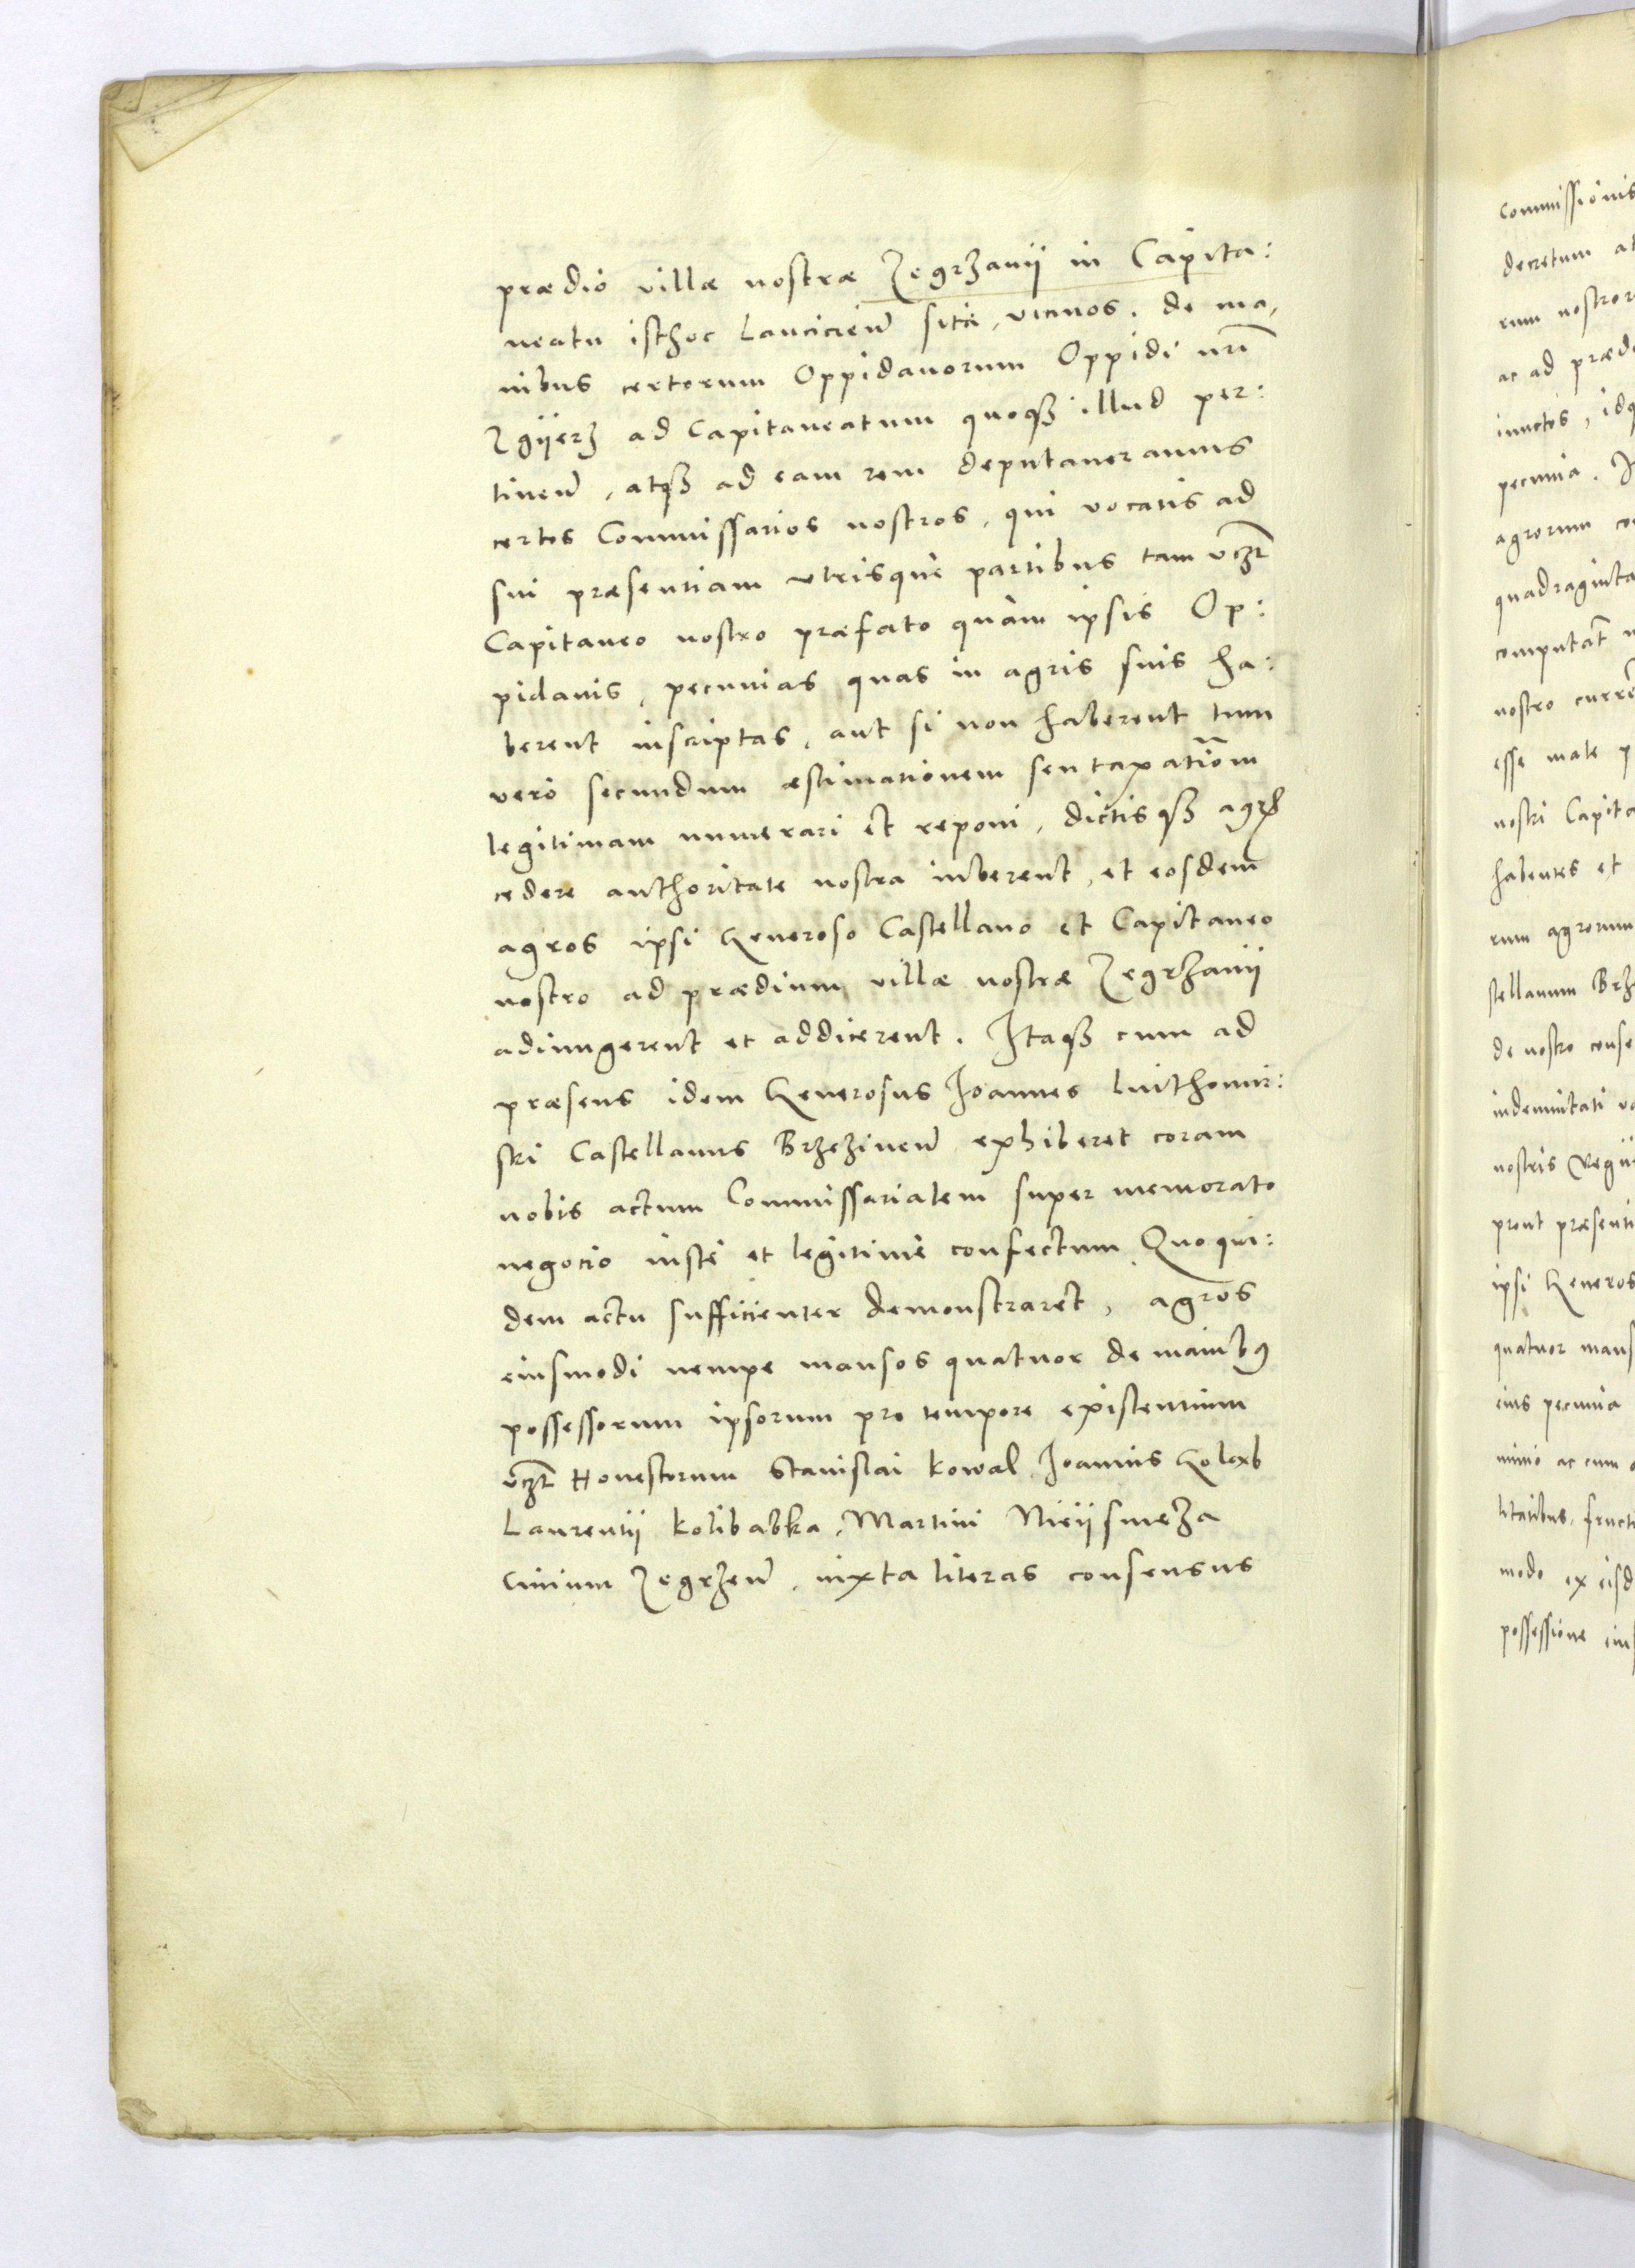 prædio villæ nostræ Zegrzanij in Capita:
neatu isthoc Lanciciens̄ sitæ, vicinos, de ma,
nibus certorum Oppidanorum Oppidi nr̄i
Zgijerz ad Capitaneatum quoqꝫ illud per:
tinen̄, atqꝫ ad eam rem deputaueramus
certos Commissarios nostros, qui vocatis ad
sui præsentiam vtrisque partibus tam vꝫ
Capitaneo nostro præfato quàm ipsis Op:
pidanis, pecunias quas in agris suis ha:
berent inscriptas, aut si non haberent tum
verò secundum æstimationem seu taxatio͞m
legitimam numerari et reponi, dictisqꝫ agrꝭ
cedere authoritate nostra iuberent, et eosdem
agros ipsi Generoso Castellano et Capitaneo
nostro ad prædium villæ nostræ Zegrzanij
adiungerent et addicerent. Itaqꝫ cum ad
præsens idem Generosus Ioannes Luthomir:
ski Castellanus Brzezinen̄ exhiberet coram
nobis actum Commissarialem super memorato
negocio iustè et legitimè confectum, Quo qui:
dem actu sufficienter demonstraret, agros
eiusmodi nempe mansos quatuor de manibꝯ
possessorum ipsorum pro tempore existentium
vꝫ Honestorum Stanislai Kowal, Ioannis Golemb
Laurentij Kolibabka, Martini Nieijsmeza
Ciuium Zegrzen̄, iuxta literas consensus
commissionis
decretum at
rum nostror
ac ad præd
iunctos, idq
pecunia. I
agrorum co
quadraginta
computat̄
nostro curre
esse male p
nostri Capita
habentes et
rum agrorum
stellanum Brz
de nostro conse
indemnitati
nostris Regij
prout præsenti
ipsi Generos
quatuor mans
eius pecunia
minio ac cum
litatibus, fructi
modo ex eisd
possessione eius